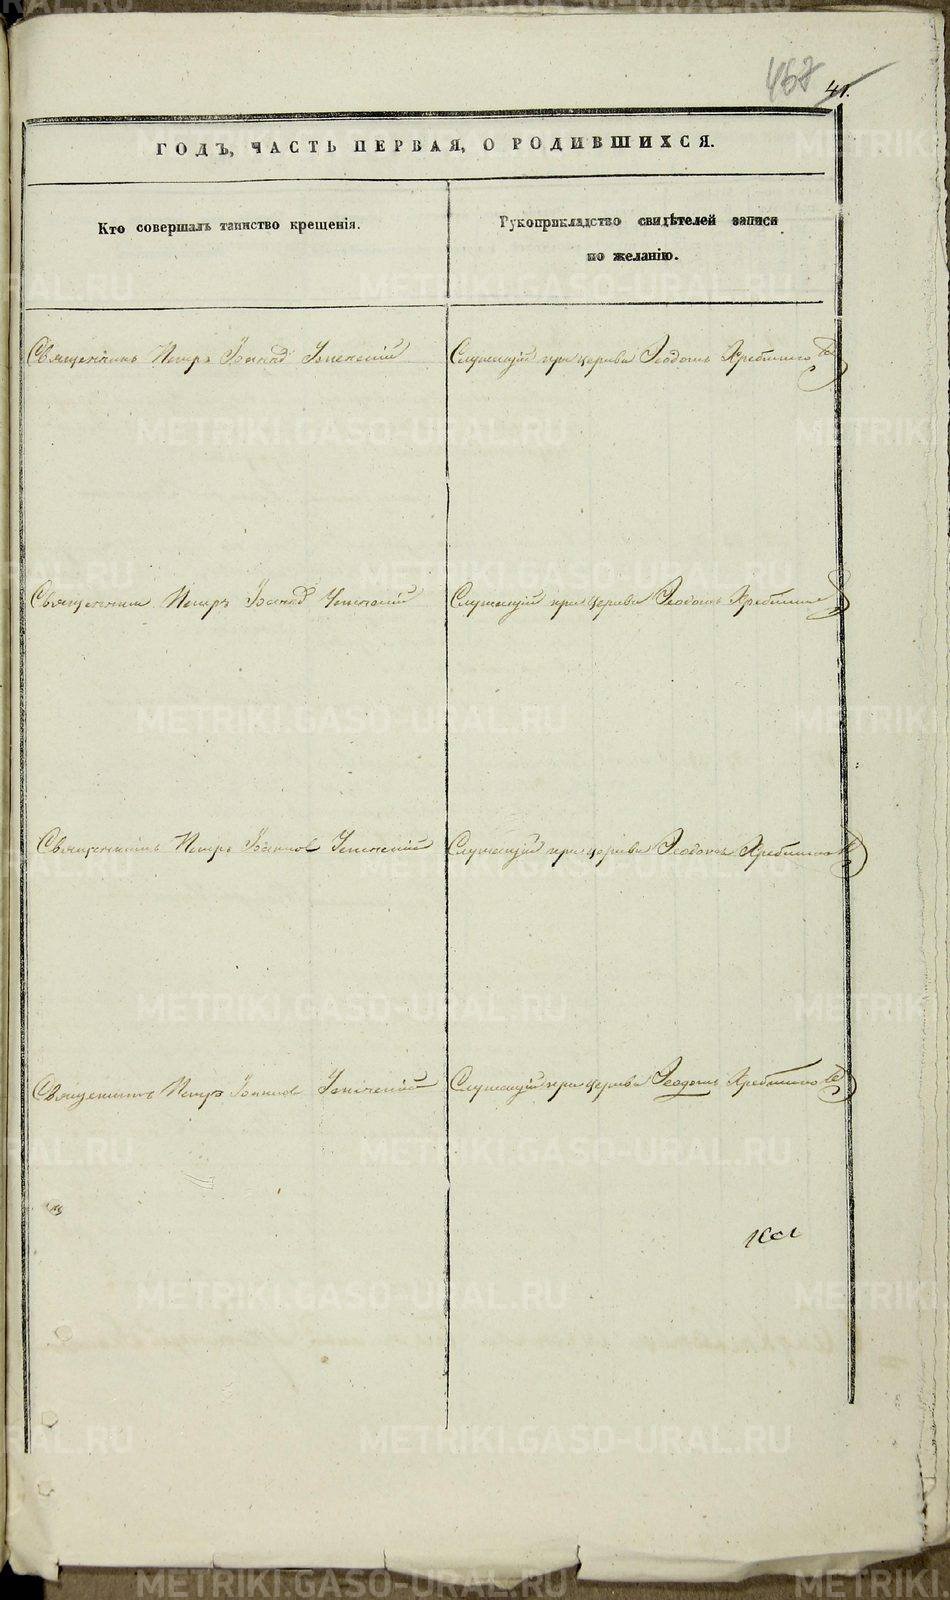 468 41.
ГОДЪ, ЧАСТЬ ПЕРВАЯ, О РОДИВШИХСЯ.
Кто совершалъ таинство крещенія.
Рукоприкладство свидѣтелей записи
по желанію.
Священникъ Петръ Іоанновъ Успенскій
Служащій при церкви Ѳедотъ
Священникъ Петръ Іоанновъ Успенскій
Служащій при церкви Ѳедотъ
Священникъ Петръ Іоанновъ Успенскій
Служащій при церкви Ѳедотъ
Священникъ Петръ Іоанновъ Успенскій
Служащій при церкви Ѳедотъ
METRIKI.GASO-URAL.RU